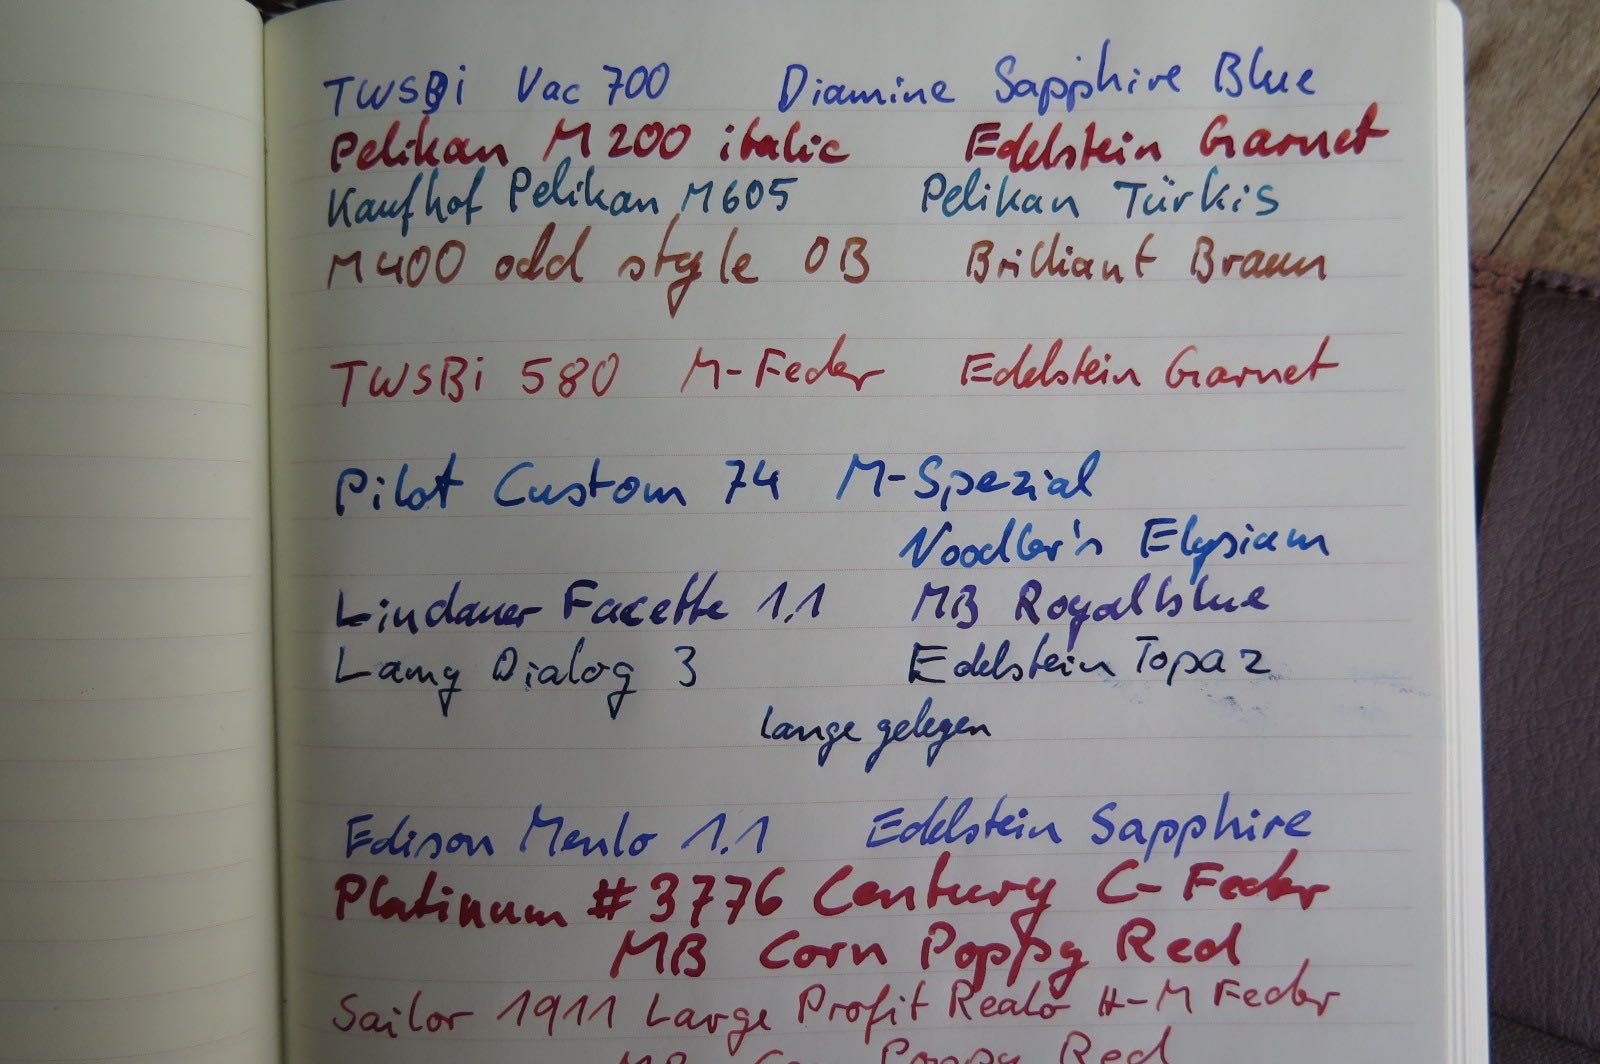 TWSBi Vac 700 Diamine Sapphire Blue
Pelikan M200 italic Edelstein Garnet
Kaufhof Pelikan M605 Pelikan Türkis
M400 odd style OB Brilliant Braun
TWSBi 580 M-Feder Edelstein Garnet
Pilot Custom 74 M-Spezial
Noodler's Elysium
Lindauer Facette 1,1 MB Royalblue
Lamy Dialog 3 Edelstein Topaz
lange gelegen
Edison Menlo 1.1 Edelstein Sapphire
Platinum #3776 Century C-Feder
MB Corn Poppy Red
Sailor 1911 Large Profit Realo H-M Feder
MB Corn Poppy Red